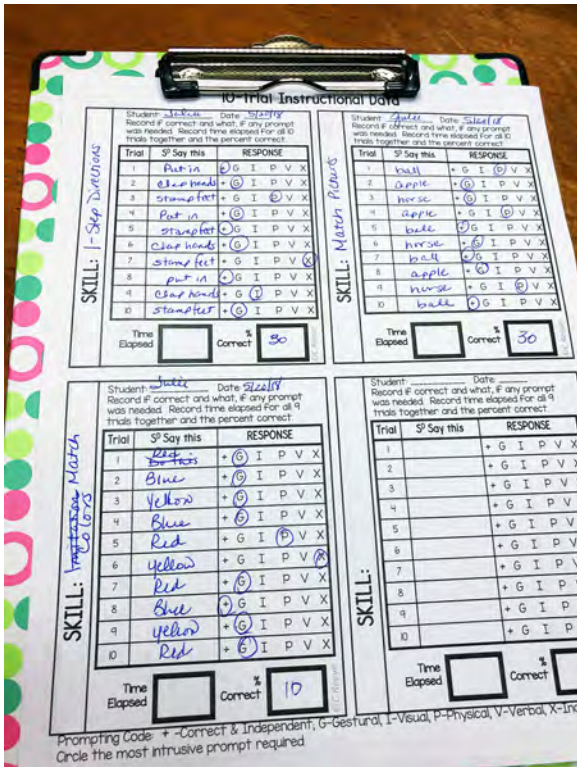 10-Trial Instructional Data
SKILL: 1-Step Directions
Student: Julie Date: 5/20/18
Record if correct and what, if any prompt
was needed. Record time elapsed for all 10
trials together and the percent correct.
Trial SD Say this RESPONSE
1 Put in + G I P V X
2 clap hands + G I P V X
3 stamp feet + G I P V X
4 Put in + G I P V X
5 stamp feet + G I P V X
6 clap hands + G I P V X
7 stamp feet + G I P V X
8 put in + G I P V X
9 clap hands + G I P V X
10 stamp feet + G I P V X
Time Elapsed % Correct 30
SKILL: Match Pictures
Student: Julie Date: 5/20/18
Record if correct and what, if any prompt
was needed. Record time elapsed for all 10
trials together and the percent correct.
Trial SD Say this RESPONSE
1 ball + G I P V X
2 apple + G I P V X
3 horse + G I P V X
4 apple + G I P V X
5 ball + G I P V X
6 horse + G I P V X
7 ball + G I P V X
8 apple + G I P V X
9 horse + G I P V X
10 ball + G I P V X
Time Elapsed % Correct 30
SKILL: Imitation Match Colors
Student: Julie Date 5/20/18
Record if correct and what, if any prompt
was needed. Record time elapsed for all 9
trials together and the percent correct.
Trial SD Say this RESPONSE
1 Red Do this + G I P V X
2 Blue + G I P V X
3 Yellow + G I P V X
4 Blue + G I P V X
5 Red + G I P V X
6 yellow + G I P V X
7 Red + G I P V X
8 Blue + G I P V X
9 yellow + G I P V X
10 Red + G I P V X
Time Elapsed % Correct 10
SKILL:
Student: Date:
Record if correct and what, if any prompt
was needed. Record time elapsed for all 9
trials together and the percent correct.
Trial SD Say this RESPONSE
1 + G I P V X
2 + G I P V
3 + G I P V
4 + G I P V
5 + G I P V
6 + G I P V
7 + G I P V
8 + G I P
9 + G I P
10 + G I P
Time Elapsed % Correct
Prompting Code: + -Correct & Independent, G-Gestural, I-Visual, P-Physical, V-Verbal, X-Inc
Circle the most intrusive prompt required